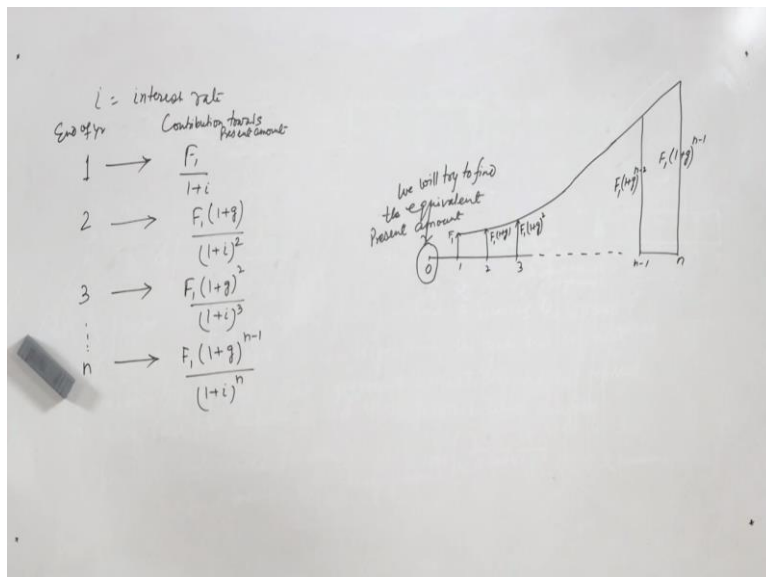 i = interest rate
End of yr Contribution towards
Present amount
1 → F₁/(1+i)
2 → F₁(1+g)/(1+i)²
3 → F₁(1+g)²/(1+i)³
⋮
n → F₁(1+g)ⁿ⁻¹/(1+i)ⁿ
We will try to find
the equivalent
Present amount
F₁ F₁(1+g) F₁(1+g)² F₁(1+g)ⁿ⁻² F₁(1+g)ⁿ⁻¹
0 1 2 3 n-1 n